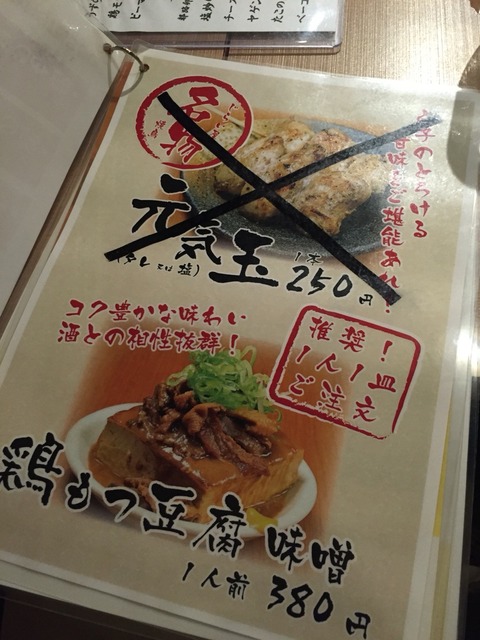 名物
元気玉
(タレ又は塩)
1本
250円
のとろける
甘味をご堪能あれ!
コク豊かな味わい
酒との相性抜群!
推奨!
1人1皿
ご注文
鶏もつ豆腐 味噌
1人前 380円